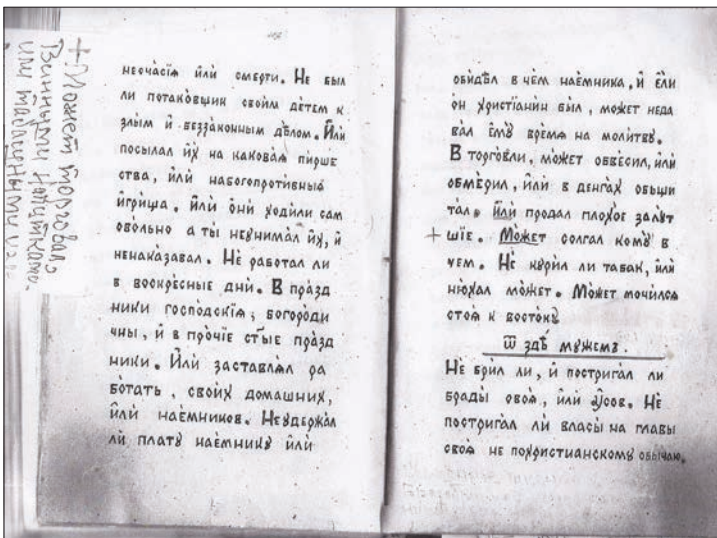 + Может торговалъ
Винными напитками
или табацными
несча́стїѧ и҆лѝ сме́рти. Не был
ли пота́ковщик свои́м де́тем к
злым и҆ беззако́нным дѣ́лом. И҆лѝ
посыла́л и҆̀х на каковаѧ пирше
ства, и҆лѝ набогопроти́вныѧ
и҆гри́ща. и҆лѝ о҆нѝ ходи́ли сам
ово́льно а ты неꙋнима́л и҆̀х, и҆̀
ненака́завал. Не рабо́тал ли
в воскре́сные днѝ. В пра́зд
ники госпо́дскїѧ, богоро́ди
чны, и҆ в про́чїе ст҃ы́е пра́зд
ники. И҆лѝ заставлѧ́л ра
бо́тать, свои́х дома́шних,
и҆лѝ нае́мников. Неꙋдержа́л
ли пла́тꙋ нае́мникꙋ и҆лѝ
оби́дѣл в че́м нае́мника, и҆ е҆́ли
о҆н христїани́н был, мо́жет неда
ва́л е҆мꙋ̀ вре́мѧ на моли́твꙋ.
В торго́вли, мо́жет обве́сил, и҆лѝ
обме́рил, и҆лѝ в деньга́х обыши
та́л. и҆лѝ про́дал плохо́е за лꙋт
+ шїе. Мо́жет солга́л комꙋ̀ в
чем. Не кꙋри́л ли таба́к, и҆лѝ
ню́хал мо́жет. Мо́жет мочи́лсѧ
стоѧ̀ к восто́кꙋ
ѿ здѣ̀ мꙋже́мъ.
Не бри́л ли, и҆ пострига́л ли
брады̀ своѧ̀, и҆лѝ ꙋ҆со́в. Не
пострига́л лѝ власы̀ на главы̀
своѧ̀ не похристианскомꙋ обы́чаю.